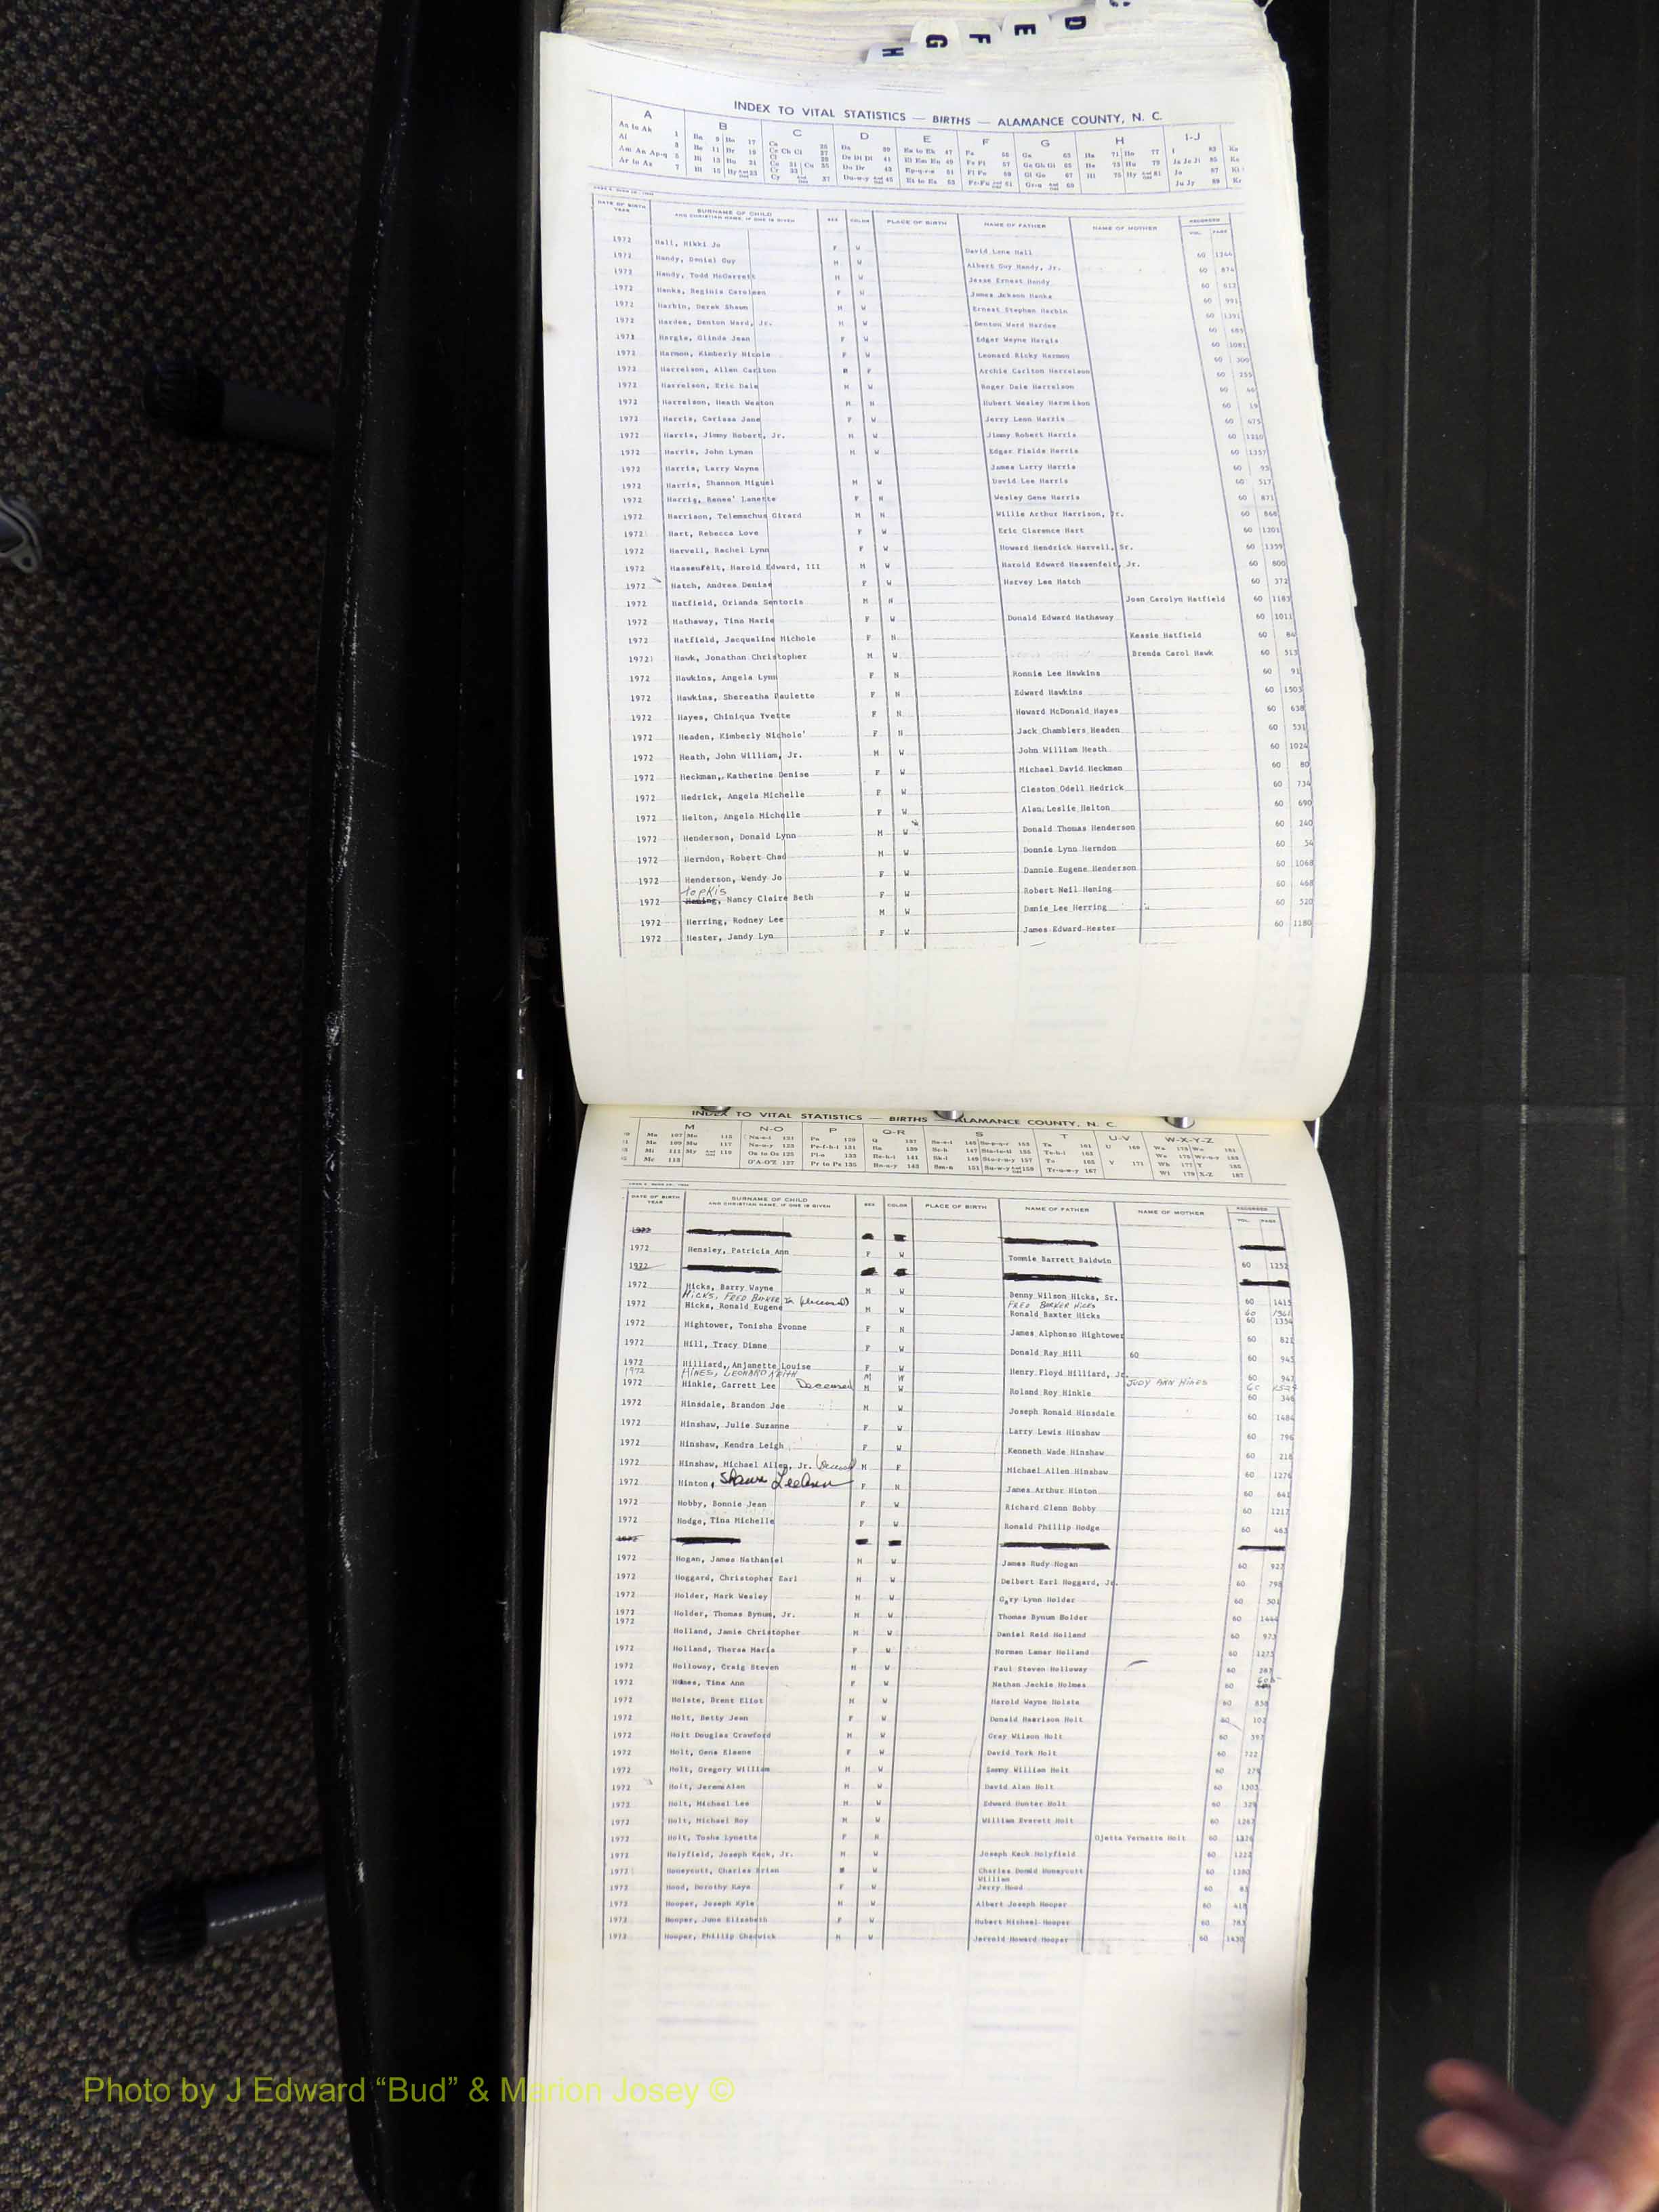 D
E
F
G
H
INDEX TO VITAL STATISTICS — BIRTHS — ALAMANCE COUNTY, N. C.
A B C D E F G H I-J
DATE OF BIRTH YEAR SURNAME OF CHILD AND CHRISTIAN NAME, IF ONE IS GIVEN SEX COLOR PLACE OF BIRTH NAME OF FATHER NAME OF MOTHER RECORDED VOL. PAGE
1972 Hall, Nikki Jo F W David Lane Hall 60
1972 Handy, Daniel Guy M W Albert Guy Handy, Jr. 60 874
1972 Handy, Todd McGarrett M W Jesse Ernest Handy 60 612
1972 Hanks, Reginia Caroleen F James Johnson Hanks 60 991
1972 Harbin, Derek Shawn M W Ernest Stephen Harbin 60 1391
1972 Hardee, Denton Ward, Jr. M W Denton Ward Hardee 60 685
1972 Hargis, Glinda Jean F W Edgar Wayne Hargis 60 1081
1972 Harmon, Kimberly Nicole F W Leonard Ricky Harmon 60 300
1972 Harrelson, Allen Carlton Archie Carlton Harrelson 60 255
1972 Harrelson, Eric Dale M W Roger Dale Harrelson 60 66
1972 Harrelson, Heath Weston M Hubert Wesley Harrelson 60 19
1972 Harris, Carissa Jane F W Jerry Leon Harris 60 675
1972 Harris, Jimmy Robert, Jr. M W Jimmy Robert Harris 60 1210
1972 Harris, John Lyman M W Edgar Fields Harris 60 1357
1972 Harris, Larry Wayne James Larry Harris 60 95
1972 Harris, Shannon Miguel M W David Lee Harris 60 517
1972 Harris, Renee' Lanette F N Wesley Gene Harris 60 871
1972 Harrison, Telemachus Girard M N Willie Arthur Harrison, Jr. 60 868
1972 Hart, Rebecca Love F W Eric Clarence Hart 60 1201
1972 Harvell, Rachel Lynn F W Howard Hendrick Harvell, Sr. 60 1359
1972 Hassenfelt, Harold Edward, III M W Harold Edward Hassenfelt, Jr. 60 800
1972 Hatch, Andrea Denise F W Harvey Lee Hatch 60 372
1972 Hatfield, Orlanda Santoris M N Joan Carolyn Hatfield 60 1183
1972 Hathaway, Tina Marie F W Donald Edward Hathaway 60 1011
1972 Hatfield, Jacqueline Michole F N Kessie Hatfield 60 84
1972 Hawk, Jonathan Christopher M W Brenda Carol Hawk 60 513
1972 Hawkins, Angela Lynn F N Ronnie Lee Hawkins 60 91
1972 Hawkins, Shereatha Paulette F N Edward Hawkins 60 1503
1972 Hayes, Chiniqua Yvette F N Howard McDonald Hayes 60 638
1972 Headen, Kimberly Nichole' F N Jack Chamblers Headen 60 531
1972 Heath, John William, Jr. M W John William Heath 60 1024
1972 Heckman, Katherine Denise F W Michael David Heckman 60 80
1972 Hedrick, Angela Michelle F W Cleston Odell Hedrick 60 734
1972 Helton, Angela Michelle F W Alan Leslie Helton 60 690
1972 Henderson, Donald Lynn M W Donald Thomas Henderson 60 240
1972 Herndon, Robert Chad M W Donnie Lynn Herndon 60 54
1972 Henderson, Wendy Jo F W Dannie Eugene Henderson 60 1068
Topkis
1972 Hening, Nancy Claire Beth F W Robert Neil Hening 60 468
1972 Herring, Rodney Lee M W Danie Lee Herring 60 520
1972 Hester, Jandy Lyn F W James Edward Hester 60 1180
INDEX TO VITAL STATISTICS — BIRTHS — ALAMANCE COUNTY, N. C.
M N-O P Q-R S T U-V W-X-Y-Z
DATE OF BIRTH YEAR SURNAME OF CHILD AND CHRISTIAN NAME, IF ONE IS GIVEN SEX COLOR PLACE OF BIRTH NAME OF FATHER NAME OF MOTHER RECORDED VOL. PAGE
1972
1972 Hensley, Patricia Ann F W Tommie Barrett Baldwin 60 1252
1972
1972 Hicks, Barry Wayne M W Benny Wilson Hicks, Sr. 60 1415
HICKS, FRED BARKER Jr (deceased) FRED BARKER HICKS 60 1361
1972 Hicks, Ronald Eugene M W Ronald Baxter Hicks 60 1354
1972 Hightower, Tonisha Evonne F N James Alphonso Hightower 60 821
1972 Hill, Tracy Dianne F W Donald Ray Hill 60 60 945
1972 Hilliard, Anjanette Louise F W Henry Floyd Hilliard, Jr. 60 947
1972 HINES, LEONARD KEITH Deceased M W JUDY ANN HINES 60
1972 Hinkle, Garrett Lee M W Roland Roy Hinkle 60 346
1972 Hinsdale, Brandon Joe M W Joseph Ronald Hinsdale 60 1484
1972 Hinshaw, Julie Suzanne F W Larry Lewis Hinshaw 60 796
1972 Hinshaw, Kendra Leigh F W Kenneth Wade Hinshaw 60 218
1972 Hinshaw, Michael Allen, Jr. Deceased M F Michael Allen Hinshaw 60 1276
1972 Hinton, Shawn LeeAnn F N James Arthur Hinton 60 641
1972 Hobby, Bonnie Jean F W Richard Glenn Hobby 60 1217
1972 Hodge, Tina Michelle F W Ronald Phillip Hodge 60 463
1972
1972 Hogan, James Nathaniel M W James Rudy Hogan 60 927
1972 Hoggard, Christopher Earl M W Delbert Earl Hoggard, Jr. 60 798
1972 Holder, Mark Wesley M W Gary Lynn Holder 60 501
1972 Holder, Thomas Bynum, Jr. M W Thomas Bynum Holder 60 1444
1972 Holland, Jamie Christopher M W Daniel Reid Holland 60 973
1972 Holland, Theresa Maria F W Norman Lamar Holland 60 1275
1972 Holloway, Craig Steven M W Paul Steven Holloway 60 287
1972 Holmes, Tina Ann F W Nathan Jackie Holmes 60
1972 Holste, Brent Eliot M W Harold Wayne Holste 60 858
1972 Holt, Betty Jean F W Donald Harrison Holt 60 102
1972 Holt Douglas Crawford M W Gray Wilson Holt 60 397
1972 Holt, Gena Eleene F W David York Holt 60 722
1972 Holt, Gregory William M W Sammy William Holt 60 279
1972 Holt, Jeremi Alan M W David Alan Holt 60 1303
1972 Holt, Michael Lee M W Edward Hunter Holt 60 329
1972 Holt, Michael Roy M W William Everett Holt 60 1267
1972 Holt, Tosha Lynette F N Ojetta Vernette Holt 60 1326
1972 Holyfield, Joseph Keck, Jr. M W Joseph Keck Holyfield 60 1222
1972 Honeycutt, Charles Brian W Charles Donald Honeycutt 60 1280
William
1972 Hood, Dorothy Kaye F W Jerry Hood 60 83
1972 Hooper, Joseph Kyle M W Albert Joseph Hooper 60 418
1972 Hooper, June Elizabeth F W Hubert Michael Hooper 60 783
1972 Hooper, Phillip Chadwick M W Jerrold Howard Hooper 60 1430
Photo by J Edward “Bud” & Marion Josey ©